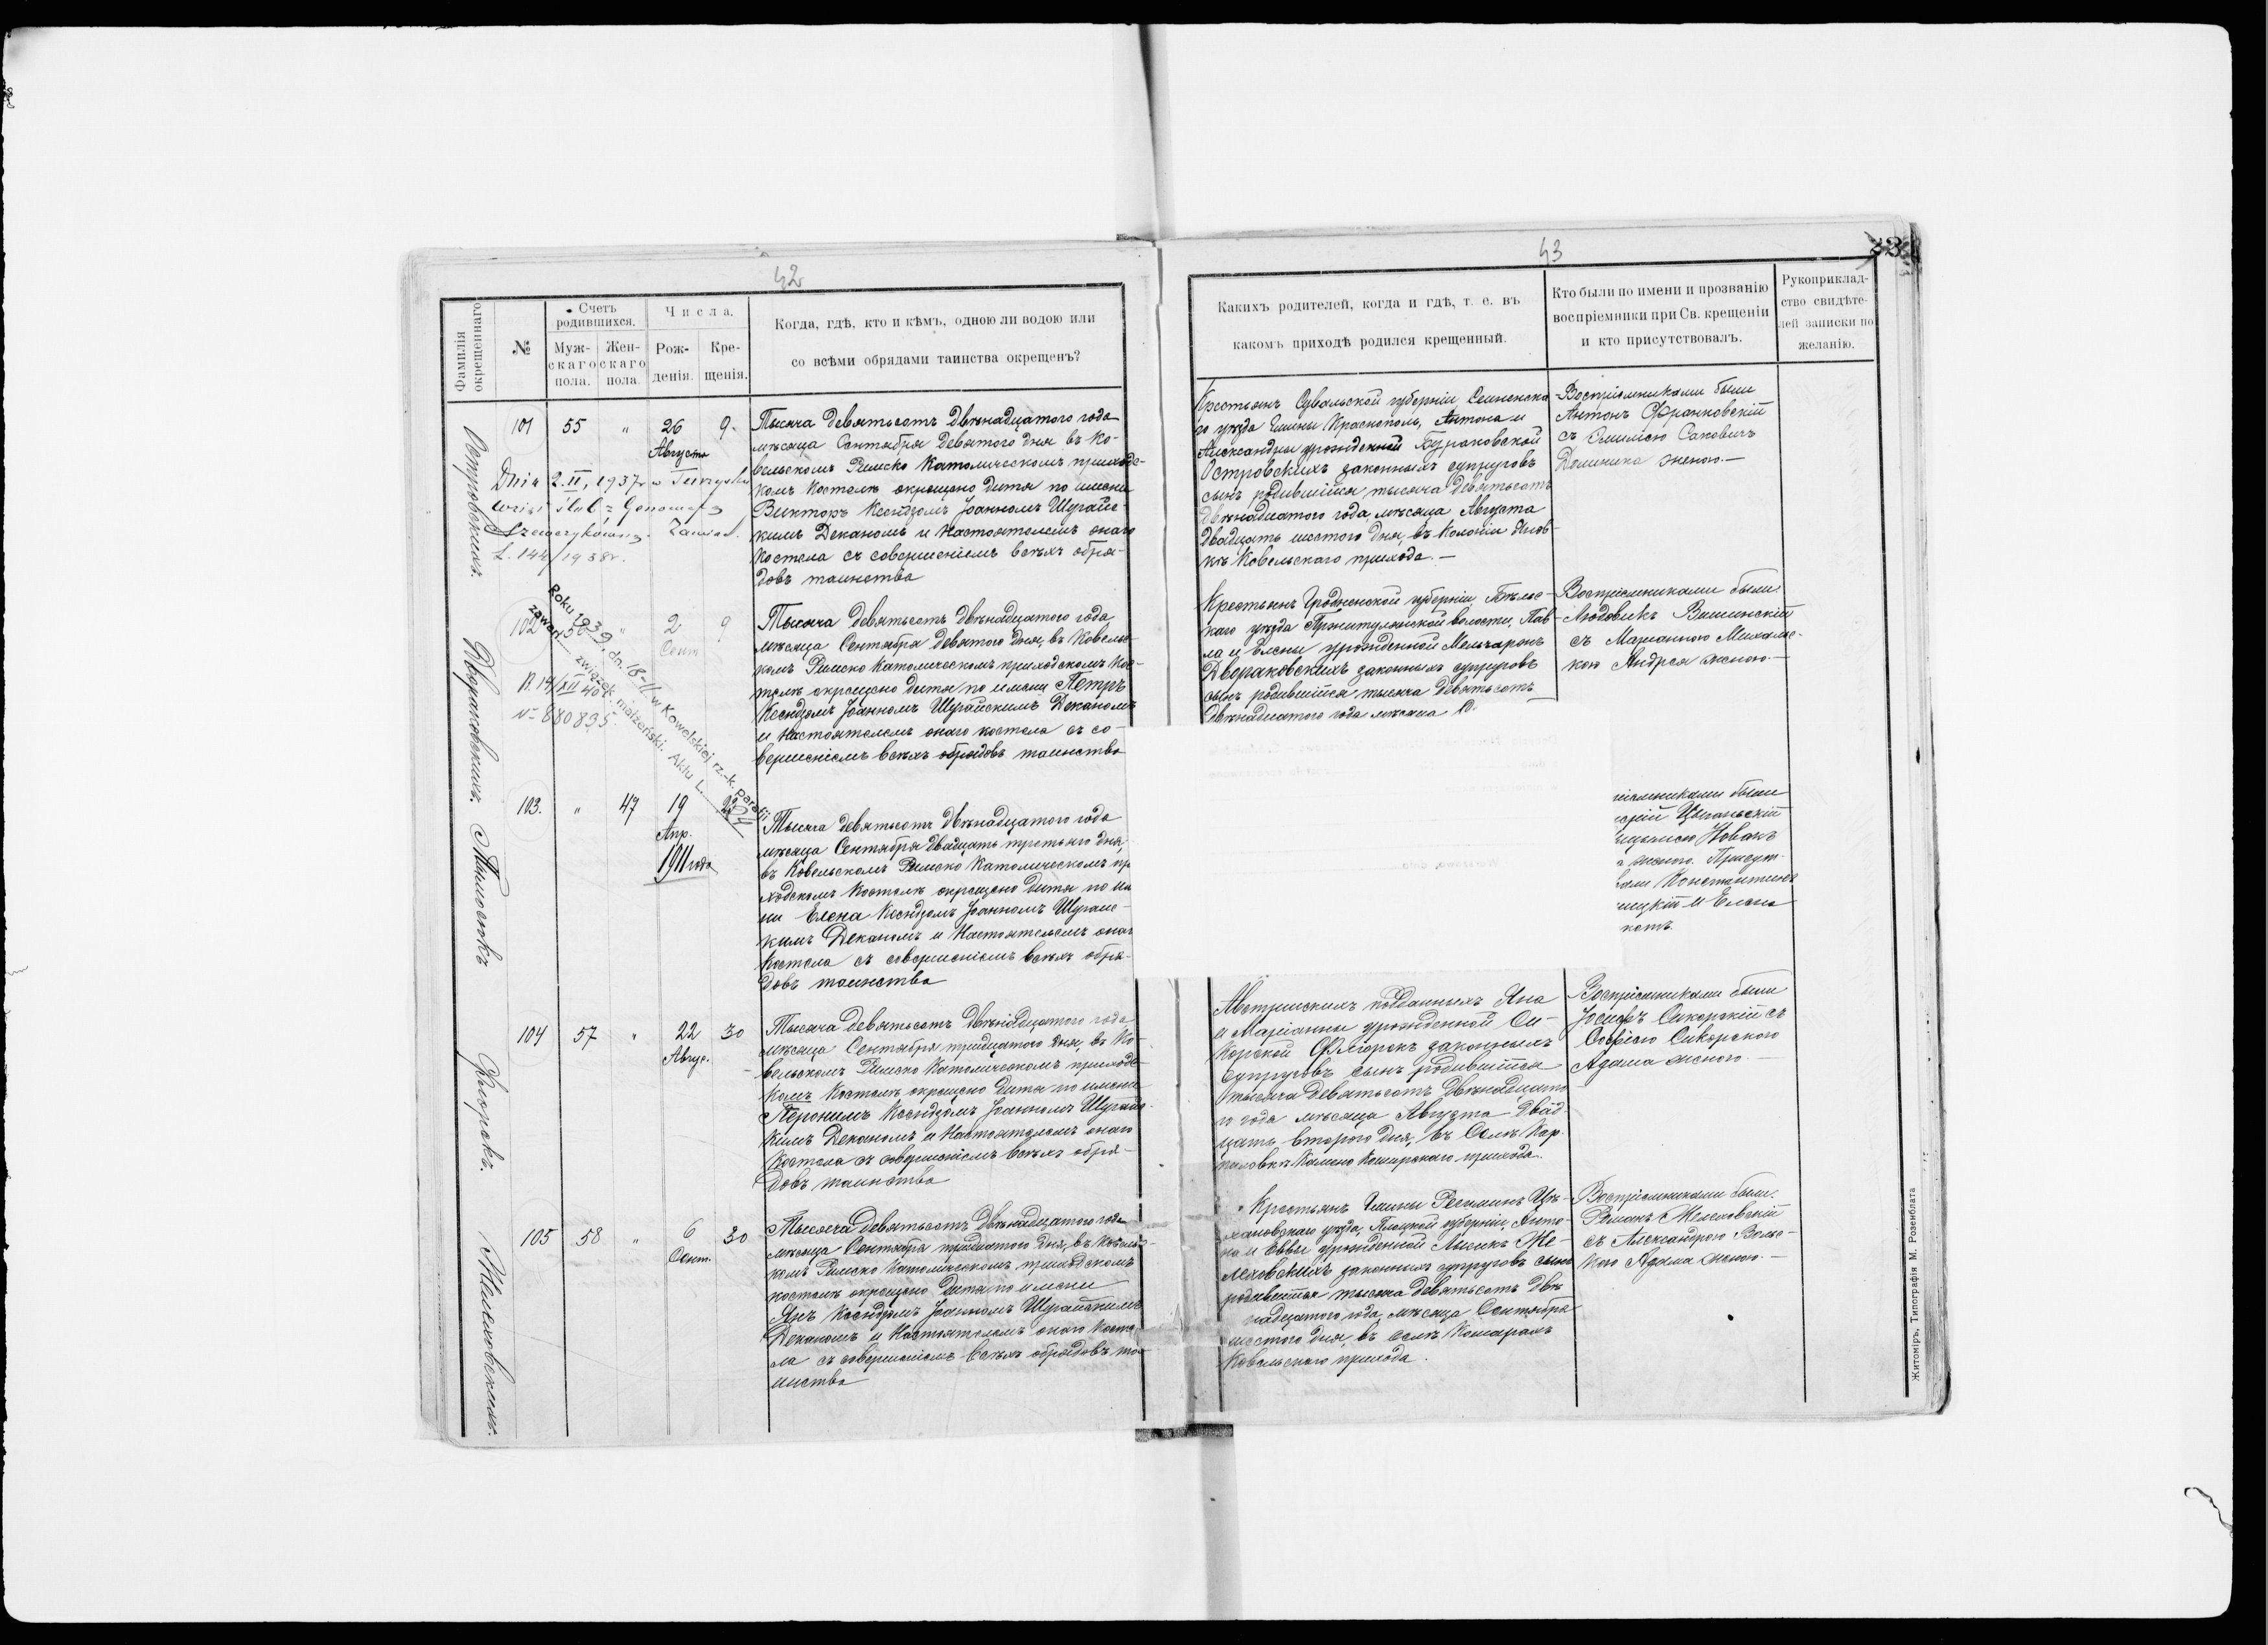 42
Фамилія окрещеннаго.
№
Счетъ родившихся.
Муж-
скаго
пола.
Жен-
скаго
пола.
Числа.
Рож-
денія.
Кре-
щенія.
Когда, гдѣ, кто и кѣмъ, одною ли водою или
со всѣми обрядами таинства окрещенъ?
Островскихъ.
101
55
"
26
Августа
9.
Тысяча девятьсотъ двѣнадцатого года
мѣсяца Сентября девятого дня въ Ко-
вельскомъ Римско Католическомъ приходс-
комъ костелѣ окрещено дитя по имени
Викторъ Ксендзомъ Іоанномъ Шурайс-
кимъ Деканомъ и Настоятелемъ онаго
костела съ совершеніемъ всѣхъ обря-
довъ таинства
Dnia 2.II, 1937r w
wziął ślub z Genowefą
L. 144/1938r.
Двораковскихъ.
102
56
"
2
Сент
9
Тысяча девятьсотъ двѣнадцатого года
мѣсяца Сентября девятого дня, въ Ковельс-
комъ Римско Католическомъ приходскомъ кос-
телѣ окрещено дитя по имени Петръ
Ксендзомъ Іоанномъ Шурайскимъ Деканомъ
и Настоятелемъ онаго костела съ со-
вершеніемъ всѣхъ обрядовъ таинства
Roku 1939, dn. 18-II w Kowelskiej rz.-k. parafii
zawarł związek małżeński. Aktu L. 24
14/XII 40 r.
№ 880835.
103.
"
47
19
Апр.
1911 года
23
Тысяча девятьсотъ двѣнадцатого года
мѣсяца Сентября двадцать третьяго дня,
въ Ковельскомъ Римско Католическомъ при
ходскомъ Костелѣ окрещено дитя по им
ни Елена Ксендзомъ Іоанномъ Шурайс-
кимъ Деканомъ и Настоятелемъ онаго
Костела съ совершеніемъ всѣхъ обря-
довъ таинства
Фігорокъ.
104
57
"
22
Авгус.
30
Тысяча девятьсотъ двѣнадцатого года
мѣсяца Сентября тридцатого дня, въ Ко-
вельскомъ Римско Католическомъ приходс-
комъ Костелѣ окрещено дитя по имени
Іеронимъ Ксендзомъ Іоанномъ Шурайс-
кимъ Деканомъ и Настоятелемъ онаго
Костела съ совершеніемъ всѣхъ обря-
довъ таинства
Желеховскихъ.
105
58
"
6
Сент.
30
Тысяча девятьсотъ двѣнадцатого года
мѣсяца Сентября тридцатого дня, въ Ковельс-
комъ Римско Католическомъ приходскомъ
костелѣ окрещено дитя по имени
Янъ Ксендзомъ Іоанномъ Шурайскимъ
Деканомъ и Настоятелемъ онаго Косте
ла съ совершеніемъ всѣхъ обрядовъ та-
инства
43
Какихъ родителей, когда и гдѣ, т. е. въ
какомъ приходѣ родился крещенный.
Кто были по имени и прозванію
воспріемники при Св. крещеніи
и кто присутствовалъ.
Рукоприклад-
ство свидѣте-
лей записки по
желанію.
Крестьянъ Сувалкской губерніи Сейненска
го уѣзда Гмины Краснополь, Антона и
Александры урожденной Бураковской
Островскихъ законныхъ супруговъ
сынъ родившійся тысяча девятьсотъ
двѣнадцатого года, мѣсяца Августа
двадцать шестого дня, въ Колоніи Янов-
кѣ Ковельскаго прихода.—
Воспріемниками были
Антонъ Франковскій
съ Эмиліею Саковичъ
Доминика женою.—
Крестьянъ Гродненской губерніи Бѣльс-
каго уѣзда Пржитулянской волости, Пав-
ла и Елены урожденной Мельчарокъ
Двораковскихъ законныхъ супруговъ
сынъ родившійся тысяча девятьсотъ
двѣнадцатого года мѣсяца
Воспріемниками были.
Людовикъ Вишинскій
съ Маріанною Михальс-
кою Андрея женою.—
ріемниками были
Цыганскій
Новакъ
женою. Присут-
вали Константинъ
ицкій и Елена
Австрійскихъ подданныхъ Яна
и Маріанны урожденной Си-
корской Фігорокъ законныхъ
супруговъ сынъ родившійся
тысяча девятьсотъ двѣнадцато
го года мѣсяца Августа двад-
цать второго дня, въ Селѣ Кар-
пиловкѣ Камено Коширскаго прихода.
Воспріемниками были
Іосифъ Сикорскій съ
Софіею Сикорскою
Адама женою.—
Крестьянъ Гмины Региминъ Цѣ-
хановскаго уѣзда, Плоцкой губерніи, Анто-
на и Еввы урожденной Лысикъ Же-
леховскихъ законныхъ супруговъ сынъ
родившійся тысяча девятьсотъ двѣ
надцатого года, мѣсяца Сентября
шестого дня, въ селѣ Кошарахъ
Ковельскаго прихода.
Воспріемниками были.
Романъ Желеховскій
съ Александрою Вольс-
кою Адама женою.—
Житоміръ, Типографія М. Розенблата